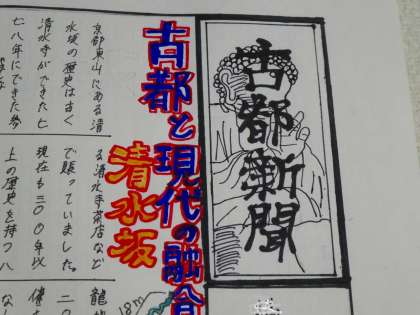 古都新聞
古都と現代の融合
清水坂
京都東山にある清
水坂の歴史は古く
清水寺ができた七
七八年にできた参
る清水寺茶店など
で賑っていました。
現在も三〇〇年以
上の歴史を持つ八
龍
二〇
催
18m